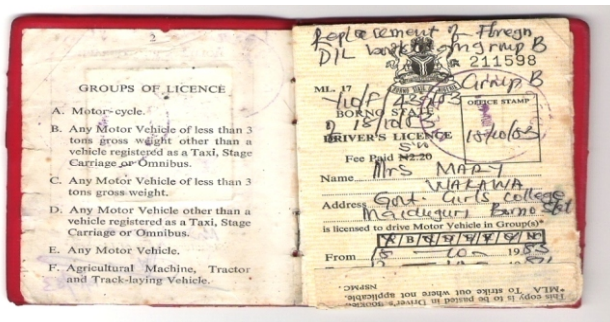 2
GROUPS OF LICENCE
A. Motor-cycle.
B. Any Motor Vehicle of less than 3
tons gross weight other than a
vehicle registered as a Taxi, Stage
Carriage or Omnibus.
C. Any Motor Vehicle of less than 3
tons gross weight.
D. Any Motor Vehicle other than a
vehicle registered as a Taxi, Stage
Carriage or Omnibus.
E. Any Motor Vehicle.
F. Agricultural Machine, Tractor
and Track-laying Vehicle.
Replacement of
D/L group B
211598
Group B
ML. 17
OFFICE STAMP
BORNO STATE
DRIVER'S LICENCE
Fee Paid N2.20
Name Mrs MARY
WAKAWA
Address Govt. Girls College
Maiduguri Borno
is licensed to drive Motor Vehicle in Group(s)*
From 10 19
NSPMC.
*MLA. To strike out where not applicable.
This copy is to be pasted in Driver's